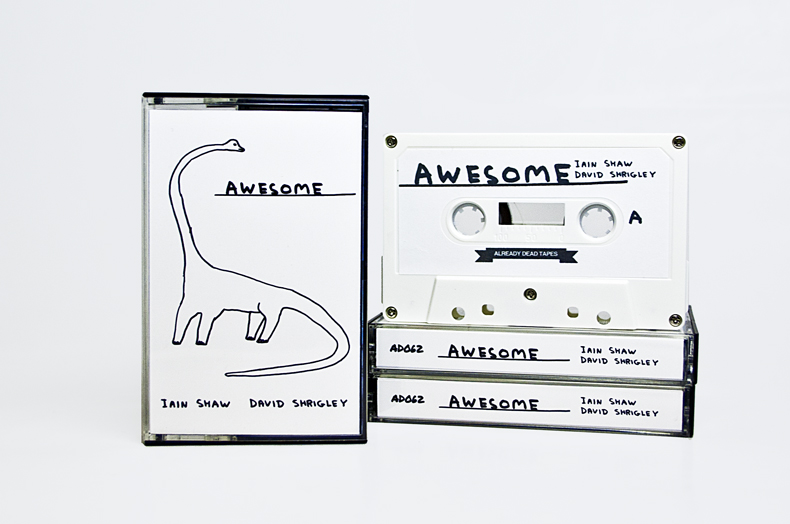 AWESOME
IAIN SHAW DAVID SHRIGLEY
AWESOME IAIN SHAW
DAVID SHRIGLEY
A
ALREADY DEAD TAPES
AD062 AWESOME IAIN SHAW
DAVID SHRIGLEY
AD062 AWESOME IAIN SHAW
DAVID SHRIGLEY